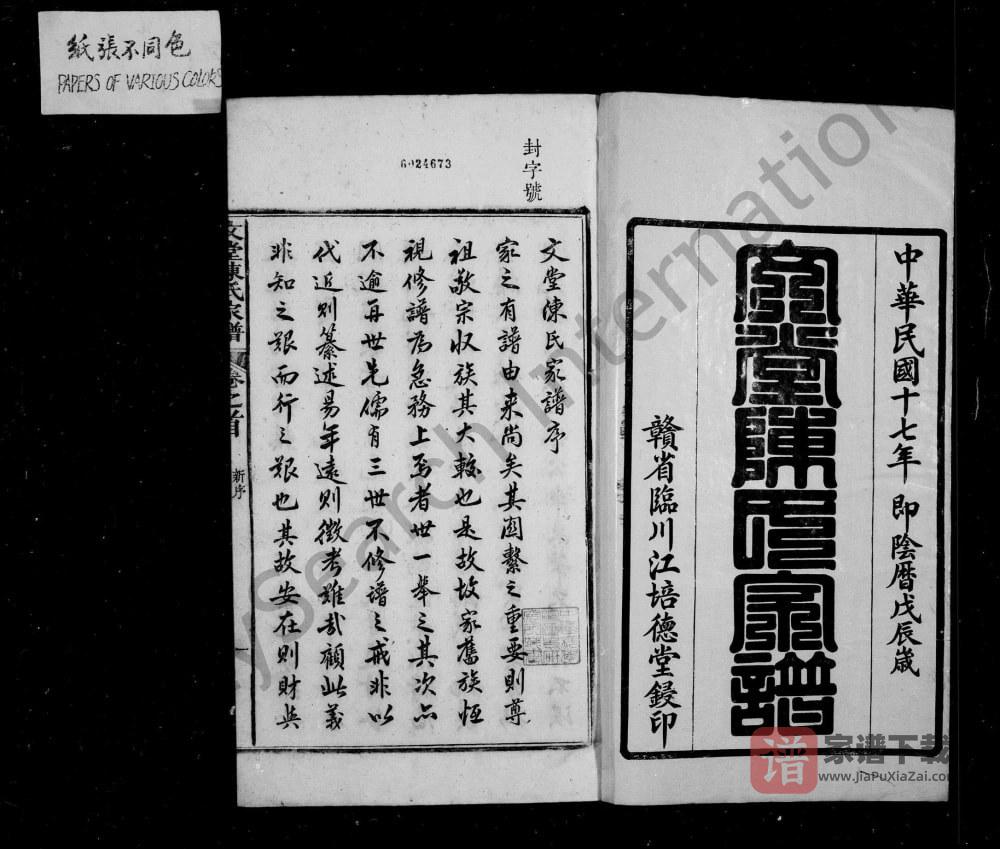 紙張不同色
PAPERS OF VARIOUS COLORS
中華民國十七年 即陰曆戊辰歲
文堂陳氏家譜
贛省臨川江培德堂鋟印
封字號
6024673
文堂陳氏家譜序
家之有譜由来尚矣其図繫之重要則尊
祖敬宗収族其大較也是故故家舊族恆
視修譜為急務上焉者世一舉之其次亦
不逾再世先儒有三世不修譜之戒非以
代近則纂述易年遠則徵考難哉顧此義
非知之艱而行之艱也其故安在則財與
文堂陳氏家譜 卷之首 新序 一
FamilySearch International
谱 家谱下载
www.JiaPuXiaZai.com